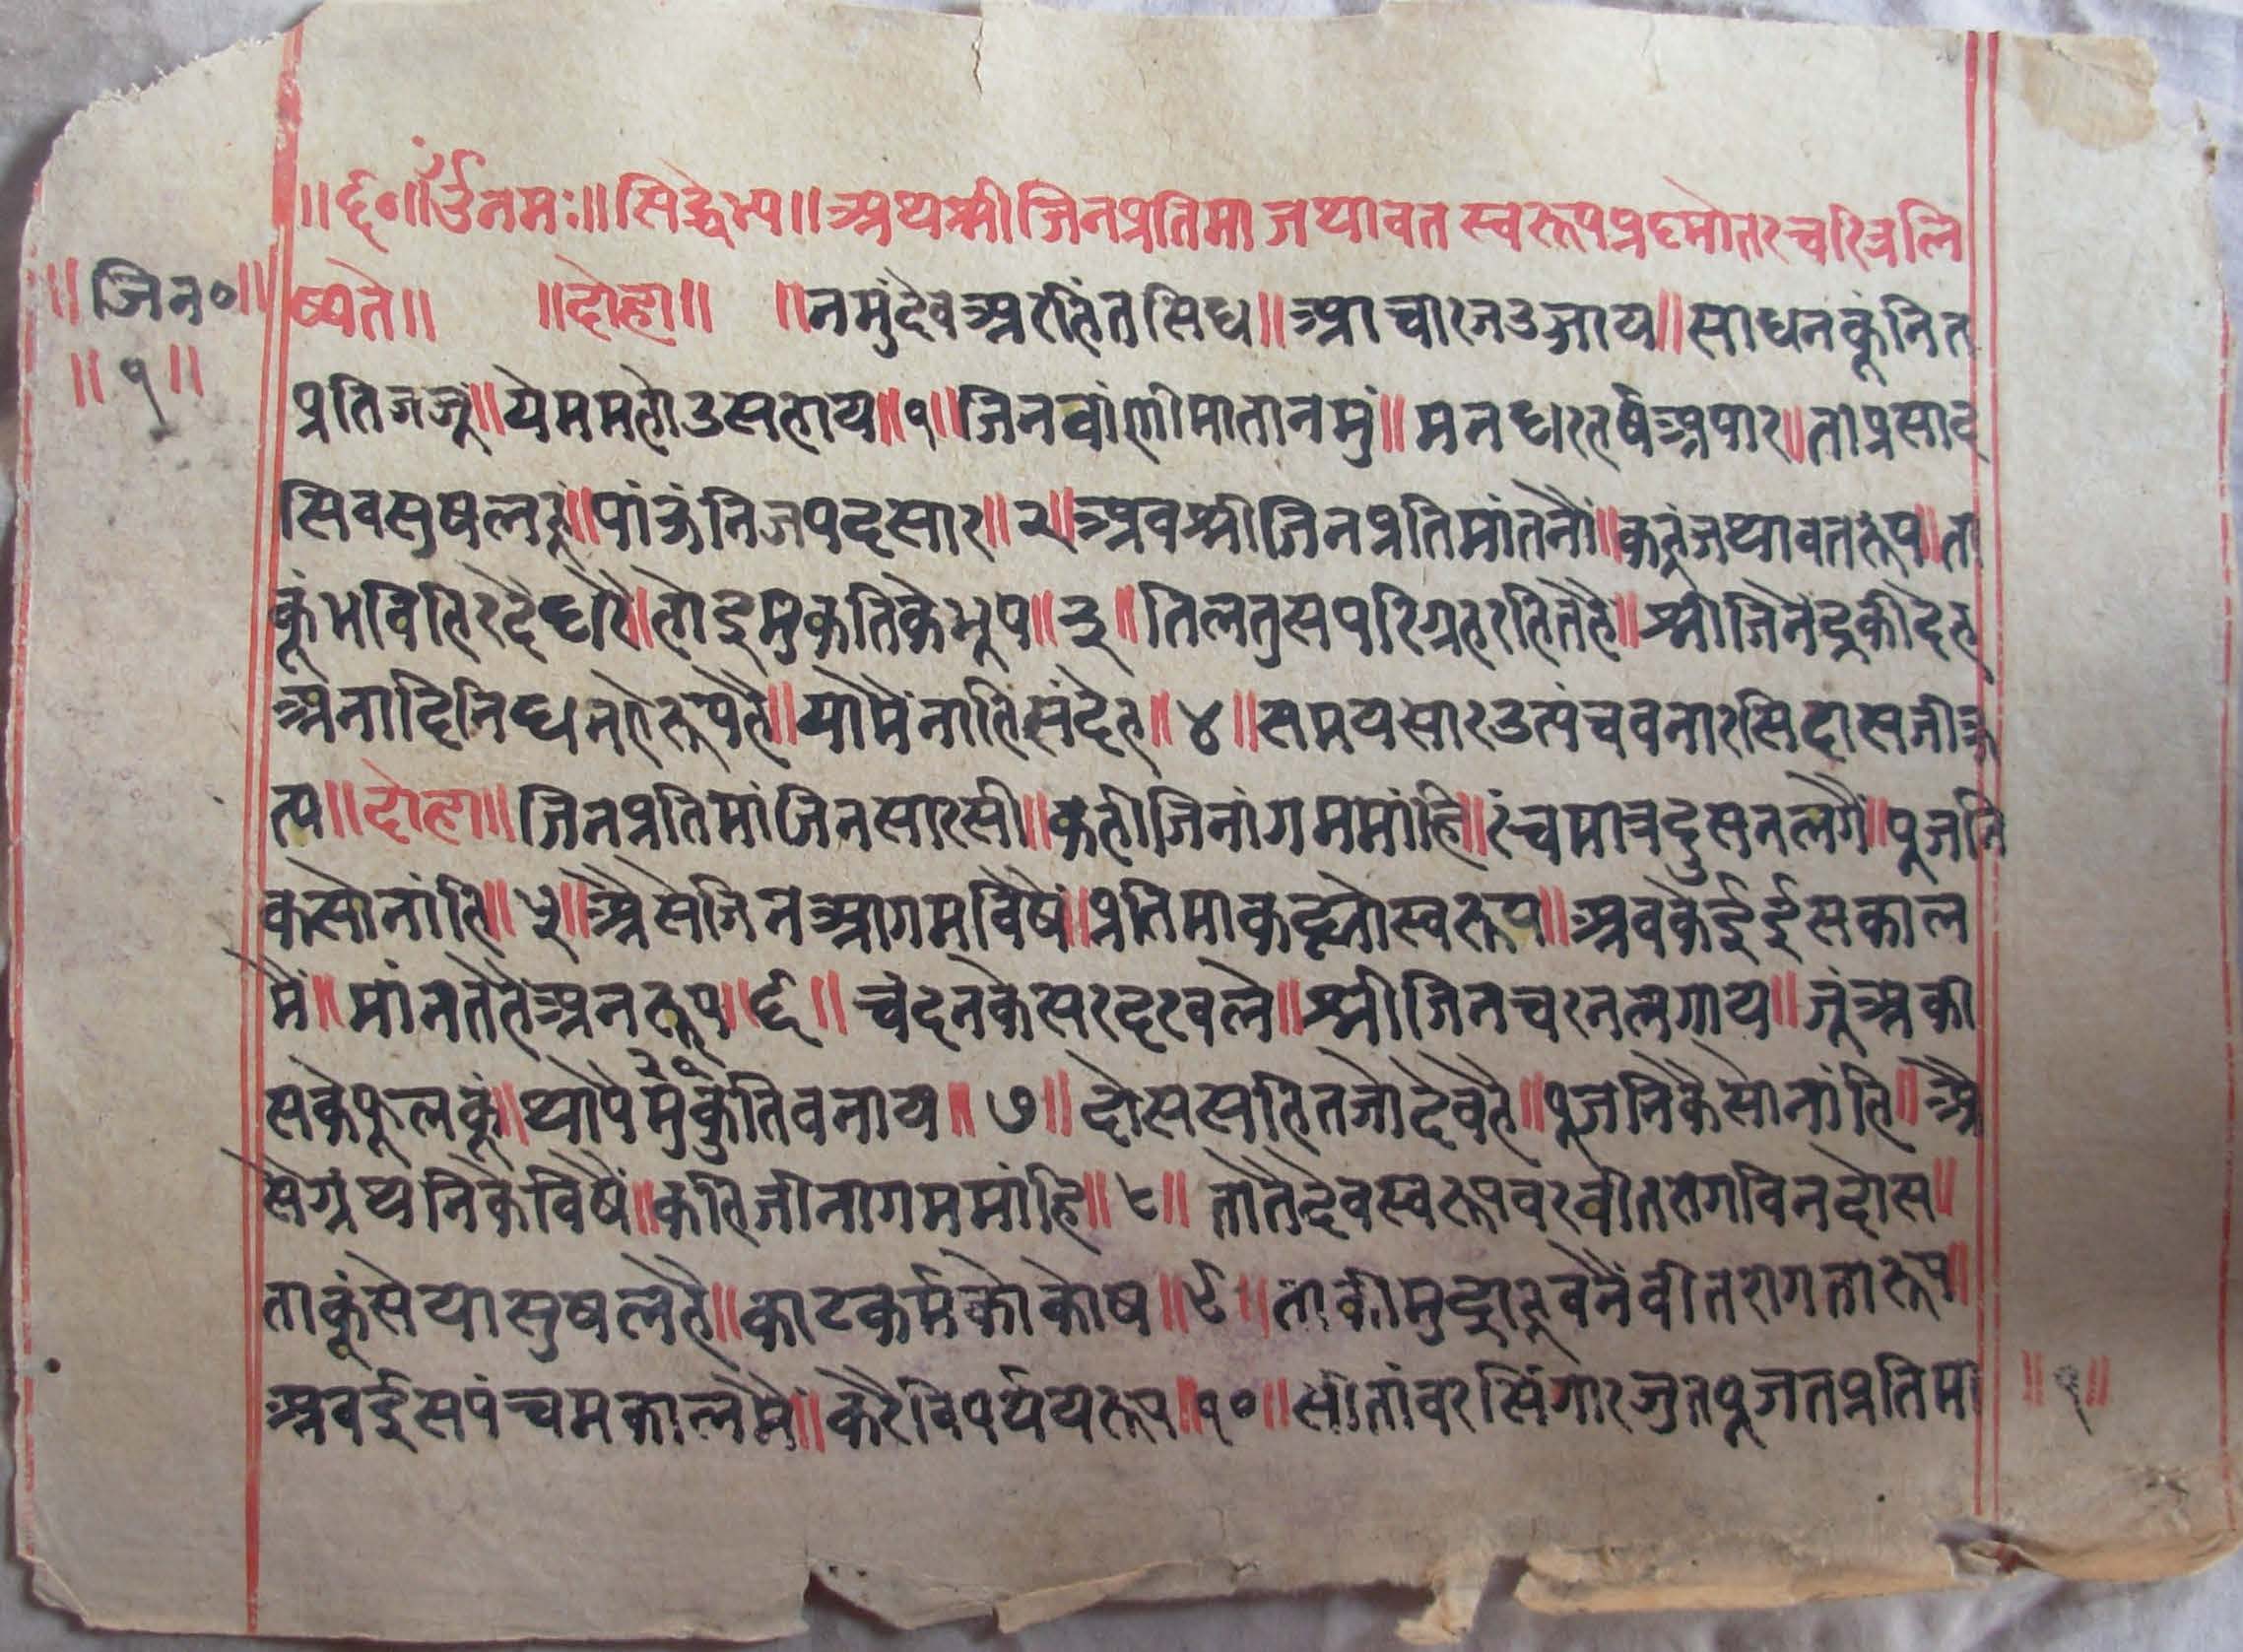 ॥र्द्द०॥ ॐ नमः॥ सिद्धेभ्य॥ अथ श्री जिनप्रतिमा जथावत स्वरूप प्रश्नोतर चरित्र लि
॥जिन०॥ ष्यते॥ ॥दोहा॥ ॥नमुं देव अरहिंत सिध॥ आचारज उजाय॥ साधनकूं नित
॥१॥ प्रति जजूं॥ ये मम होउ सहाय॥१॥ जिनवांणी माता नमुं॥ मन धार हर्ष अपार॥ ता प्रसाद
सिव सुष लहुं॥ पांऊं निज पद सार॥२॥ अब श्री जिनप्रतिमां तनौं॥ कहुं जथावत रूप॥ ता
कूं भवि हिरदै धारै॥ होइ मुकति के भूप॥३॥ तिल तुस परिग्रह रहित है॥ श्री जिनेंद्र की देह
अनादि निधन हे रूप है॥ यामैं नांहि संदेह॥४॥ समयसार उत्पंच बनारसिदासजी कृ
त्य॥ दोहा॥ जिनप्रतिमां जिन सारसी॥ कही जिनांगम मांहि॥ रंच मात्र दुसन लगै॥ पुजनि
कसो नांहि॥५॥ अैसे जिन आगम विषैं॥ प्रतिमा कह्यो स्वरूप॥ अब केई ईस काल
मैं॥ मांनत है अनरूप॥६॥ चंदन केसर दरवले॥ श्री जिन चरन लगाय॥ जुं अकी
सके फूलकूं॥ थापै मुंकुति बनाय॥७॥ दोस सहित जो देव है॥ पुजनिकैसो नांहि॥ अै
से ग्रंथनि के विषैं॥ कहि जीनागम मांहि॥८॥ तातै देव स्वरूप वर वीतराग विन दोस॥
ताकूं सेया सुष लहै॥ काट कर्म को कोष॥९॥ ताकी मुद्रा हुवनैं वीतरागता रूप॥
अब ईस पंचम काल मैं॥ करै विपर्यय रूप॥१०॥ सीतांवर सिंगार जुत पुजत प्रतिमा ॥१॥